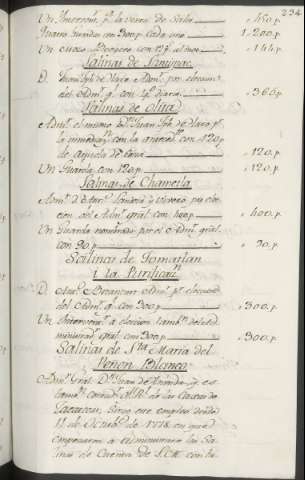 234
Un Interven.r p.a la venta de Sales 450.p
Quatro Guardas con 300 p. cada uno 1.200.p
Un cuero con 12 p. al mes 144.p
Salinas de
D. Juan Jph de Adm.r por eleccion
del Adm.r g.l con 1 p. diario 365.p
Salinas de Olita
Adm.r el mismo D.n Juan Jph de p.r
la inmediaz.n con la anterior con 120 p
de ayuda de Costa 120.p
Un Guarda con 120 p 120.p
Salinas de Chamela
Adm.r D. Ant.o y por elec
cion del Adm.r gral con 400 p. 400.p
Un Guarda nombrado por el Adm.r gral
con 90 p 90.p
Salinas de Tomatlan
i la Purificac.n
D. Ant.o Betancurt Adm.r p.r eleccion
del Adm.r g.l con 300 p 300.p
Un Interventor a eleccion tamb.n del Ad
ministrad.r gral con 300 p 300.p
Salinas de S.ta Maria del
Peñon Blanco
Adm.r Gral D.n Juan de Aranda q.e es
tamb.n contad.r de las Caxas de
Zacatecas. Sirve este empleo desde
11 de Octub.e de 1778 en que
empezaron a administrar las Sa
linas de Cuenta de S.M. con los